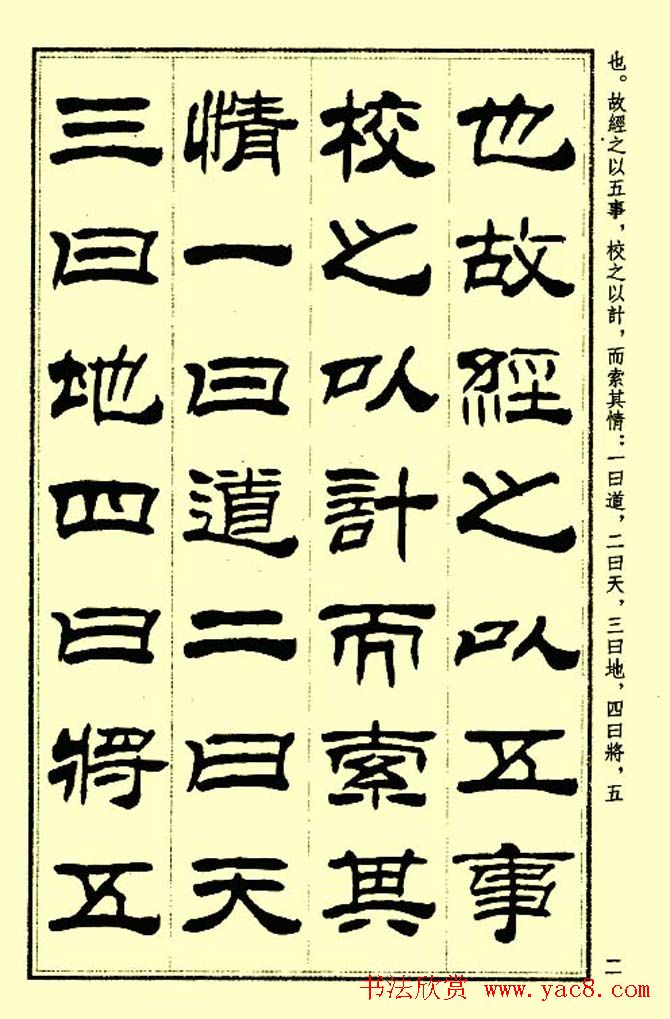 也。故經之以五事，校之以計，而索其情：一曰道，二曰天，三曰地，四曰將，五
也故經之以五事
校之以計而索其
情一曰道二曰天
三曰地四曰將五
二
书法欣赏 www.yac8.com